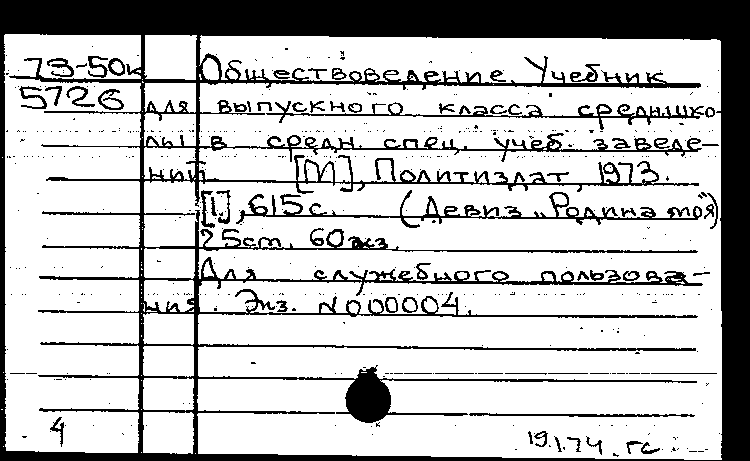 73-50к Обществоведение. Учебник
5726 для выпускного класса сред. шко-
лы и в средн. спец. учеб. заведе-
ний. [М], Политиздат, 1973.
[1], 615 с. (Девиз „Родина моя")
25 cm. 60 экз.
Для служебного пользова-
ния. Экз. N000004.
4 19.1.74. гс